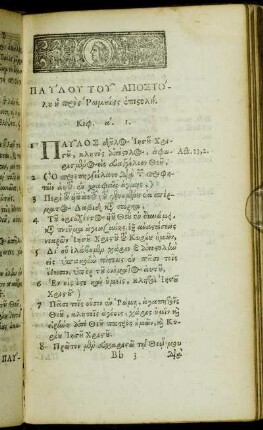 ΠΑΥΛΟΥ ΤΟΥ ΑΠΟΣΤΟ-
λου ἡ πρὸς Ῥωμαίους ἐπιστολή.
Κεφ. α. 1.
1 ΠΑΥΛΟΣ δοῦλος Ἰησοῦ Χρι-
στοῦ, κλητὸς ἀπόστολος, ἀφω-
ρισμένος εἰς εὐαγγέλιον Θεοῦ,
2 (Ὃ προεπηγγείλατο διὰ τῶν προφη-
τῶν αὐτοῦ ἐν γραφαῖς ἁγίαις,)
3 Περὶ τοῦ υἱοῦ αὐτοῦ, τοῦ γενομένου ἐκ σπέρ-
ματος Δαβὶδ κατὰ σάρκα,
4 Τοῦ ὁρισθέντος υἱοῦ Θεοῦ ἐν δυνάμει,
κατὰ πνεῦμα ἁγιωσύνης, ἐξ ἀναστάσεως
νεκρῶν Ἰησοῦ Χριστοῦ τοῦ Κυρίου ἡμῶν,
5 Δι' οὗ ἐλάβομεν χάριν καὶ ἀποστολὴν
εἰς ὑπακοὴν πίστεως ἐν πᾶσι τοῖς
ἔθνεσιν, ὑπὲρ τοῦ ὀνόματος αὐτοῦ,
6 Ἐν οἷς ἐστε καὶ ὑμεῖς, κλητοὶ Ἰησοῦ
Χριστοῦ)
7 Πᾶσι τοῖς οὖσιν ἐν Ῥώμῃ, ἀγαπητοῖς
Θεοῦ, κλητοῖς ἁγίοις, χάρις ὑμῖν καὶ
εἰρήνη ἀπὸ Θεοῦ πατρὸς ἡμῶν, καὶ Κυ-
ρίου Ἰησοῦ Χριστοῦ.
8 Πρῶτον μὲν εὐχαριστῶ τῷ Θεῷ μου
Bb 3 διὰ
ΠΑΥ-